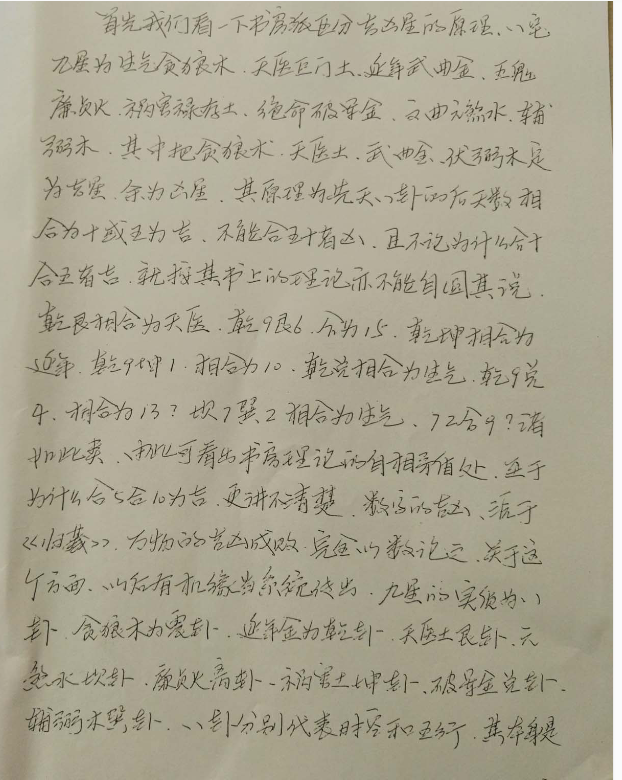 首先我们看一下书房派区分吉凶星的原理、八宅
九星为生气贪狼木、天医巨门土、延年武曲金、五鬼
廉贞火、祸害禄存土、绝命破军金、文曲六煞水、辅
弼木、其中把贪狼木、天医土、武曲金、伏弼木定
为吉星、余为凶星、其原理为先天八卦的后天数相
合为十或五为吉、不能合五十者凶、且不说为什么合十
合五者吉、就按其书上的理论亦不能自圆其说、
乾艮相合为天医、乾9艮6、合为15、乾坤相合为
延年、乾9坤1、相合为10、乾兑相合为生气、乾9兑
4、相合为13？坎7巽2相合为生气、72合9？诸
如此类、由此可看出书房理论的自相矛盾处、至于
为什么合5合10为吉、更讲不清楚、数字的吉凶、源于
《归藏》、万物的吉凶成败、完全以数论定、关于这
个方面、以后有机缘当系统传出、九星的实质为八
卦、贪狼木为震卦、延年金为乾卦、天医土艮卦、六
煞水坎卦、廉贞火离卦、祸害土坤卦、破军金兑卦、
辅弼木巽卦、八卦分别代表时空和五行、其本身是